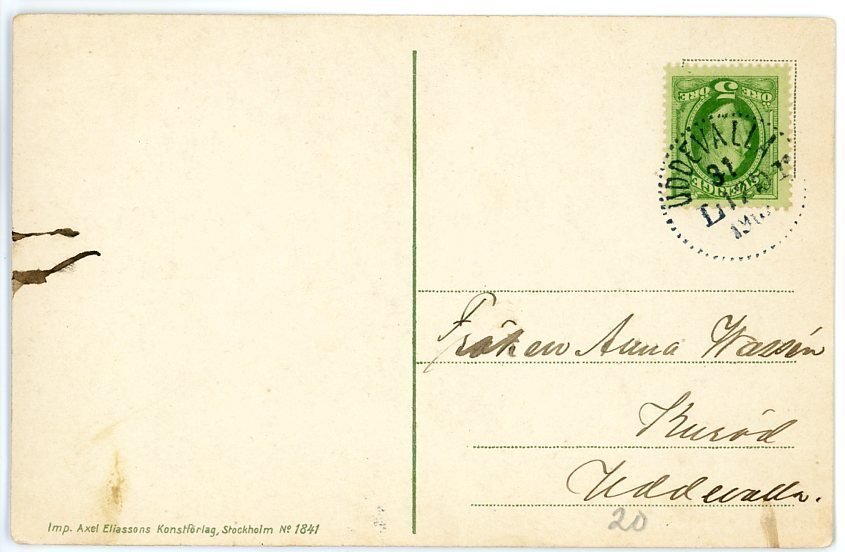 5
ÖRE ÖRE
SVERIGE
UDDEVALLA
31
12
Fröken Anna Wassén
Kuröd
Uddevalla.
20
Imp. Axel Eliassons Konstförlag, Stockholm No 1841